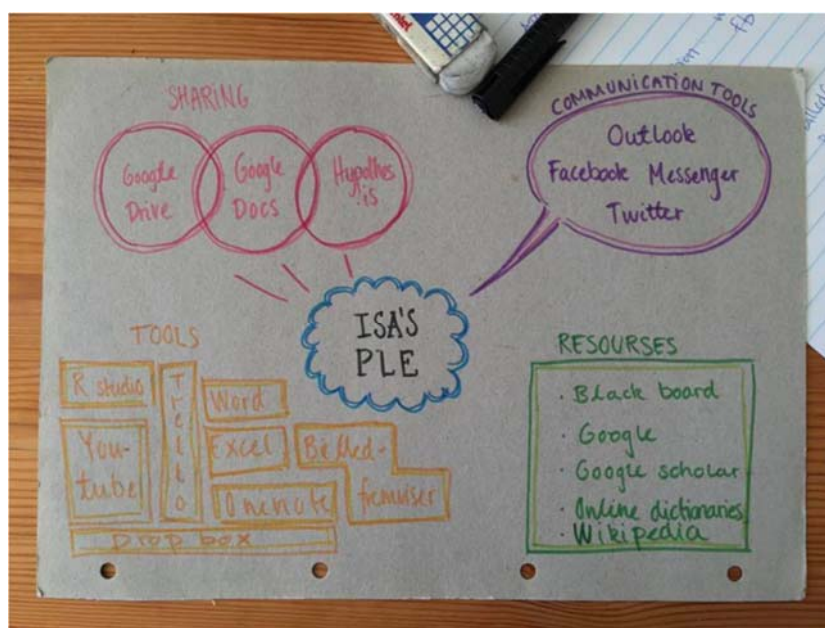 SHARING
Google
Drive
Google
Docs
Hypothes
.is
COMMUNICATION TOOLS
Outlook
Facebook Messenger
Twitter
ISA'S
PLE
TOOLS
R studio
Trello
Word
You-
tube
Excel
Billed-
fremviser
Onenote
Dropbox
RESOURSES
· Black board
· Google
· Google scholar
· Online dictionaries
· Wikipedia